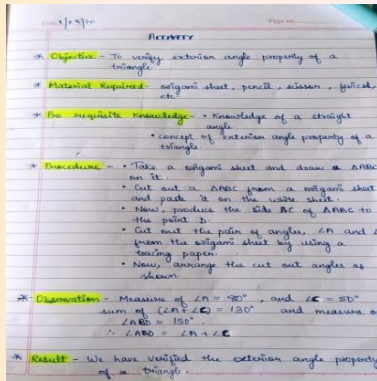 Date 3/08/20
Page no.
ACTIVITY
* Objective - To verify exterior angle property of a
triangle.
* Material Required - origami sheet, pencil, scissor, fevicol,
etc.
* Pre requisite Knowledge - • Knowledge of a straight
angle
• concept of exterior angle property of a
triangle.
* Procedure - • Take a origami sheet and draw a ∆ABC
on it.
• Cut out a ∆ABC from a origami sheet
and paste it on the white sheet.
• Now, produce the side BC of ∆ABC to
the point D.
• Cut out the pair of angles, ∠A and ∠
from the origami sheet by using a
tracing paper.
• Now, arrange the cut out angles as
shown.
* Observation - Measure of ∠A = 80°, and ∠C = 50°
sum of (∠A + ∠C) = 130° and measure of
∠ABD = 130°.
∴ ∠ABD = ∠A + ∠C
* Result - We have verified the exterior angle property
of a triangle.